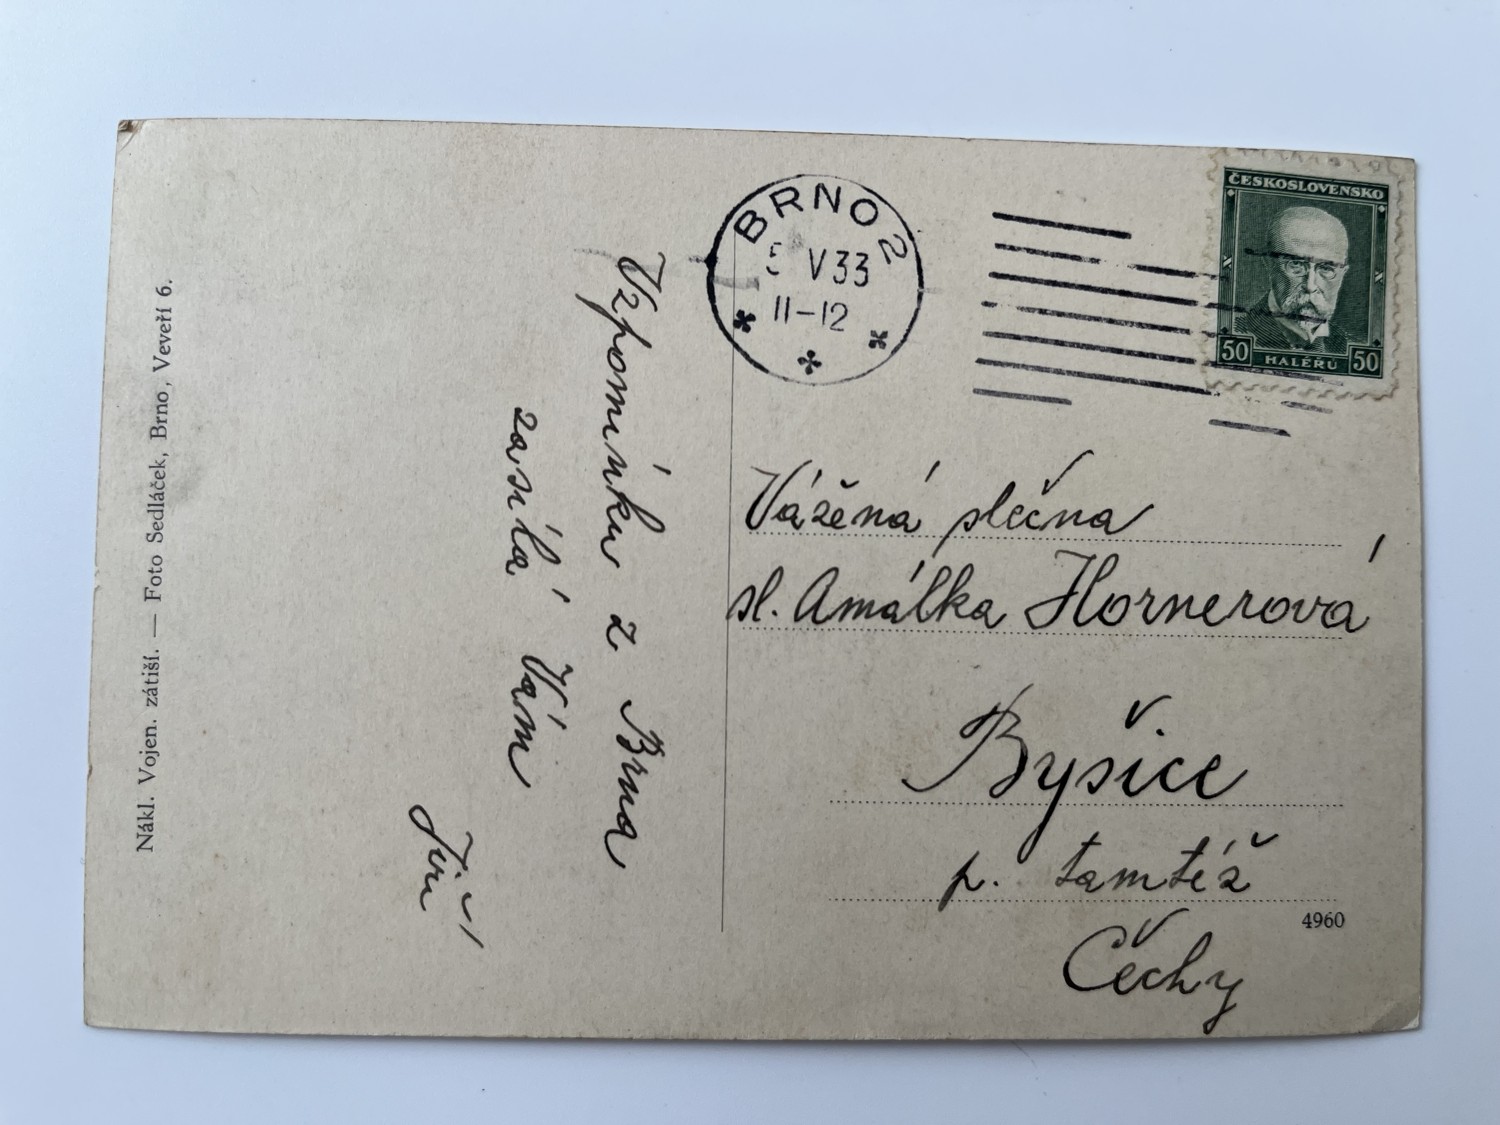 Nákl. Vojen. zátiší. — Foto Sedláček, Brno, Veveří 6.
Vzpomínku z Brna
zasílá Vám
Jiří
BRNO 2
5 V 33
11-12
ČESKOSLOVENSKO
50 HALÉŘŮ 50
Vážená slečna
sl. Amálka Hornerová
Byšice
p. tamtéž
4960
Čechy